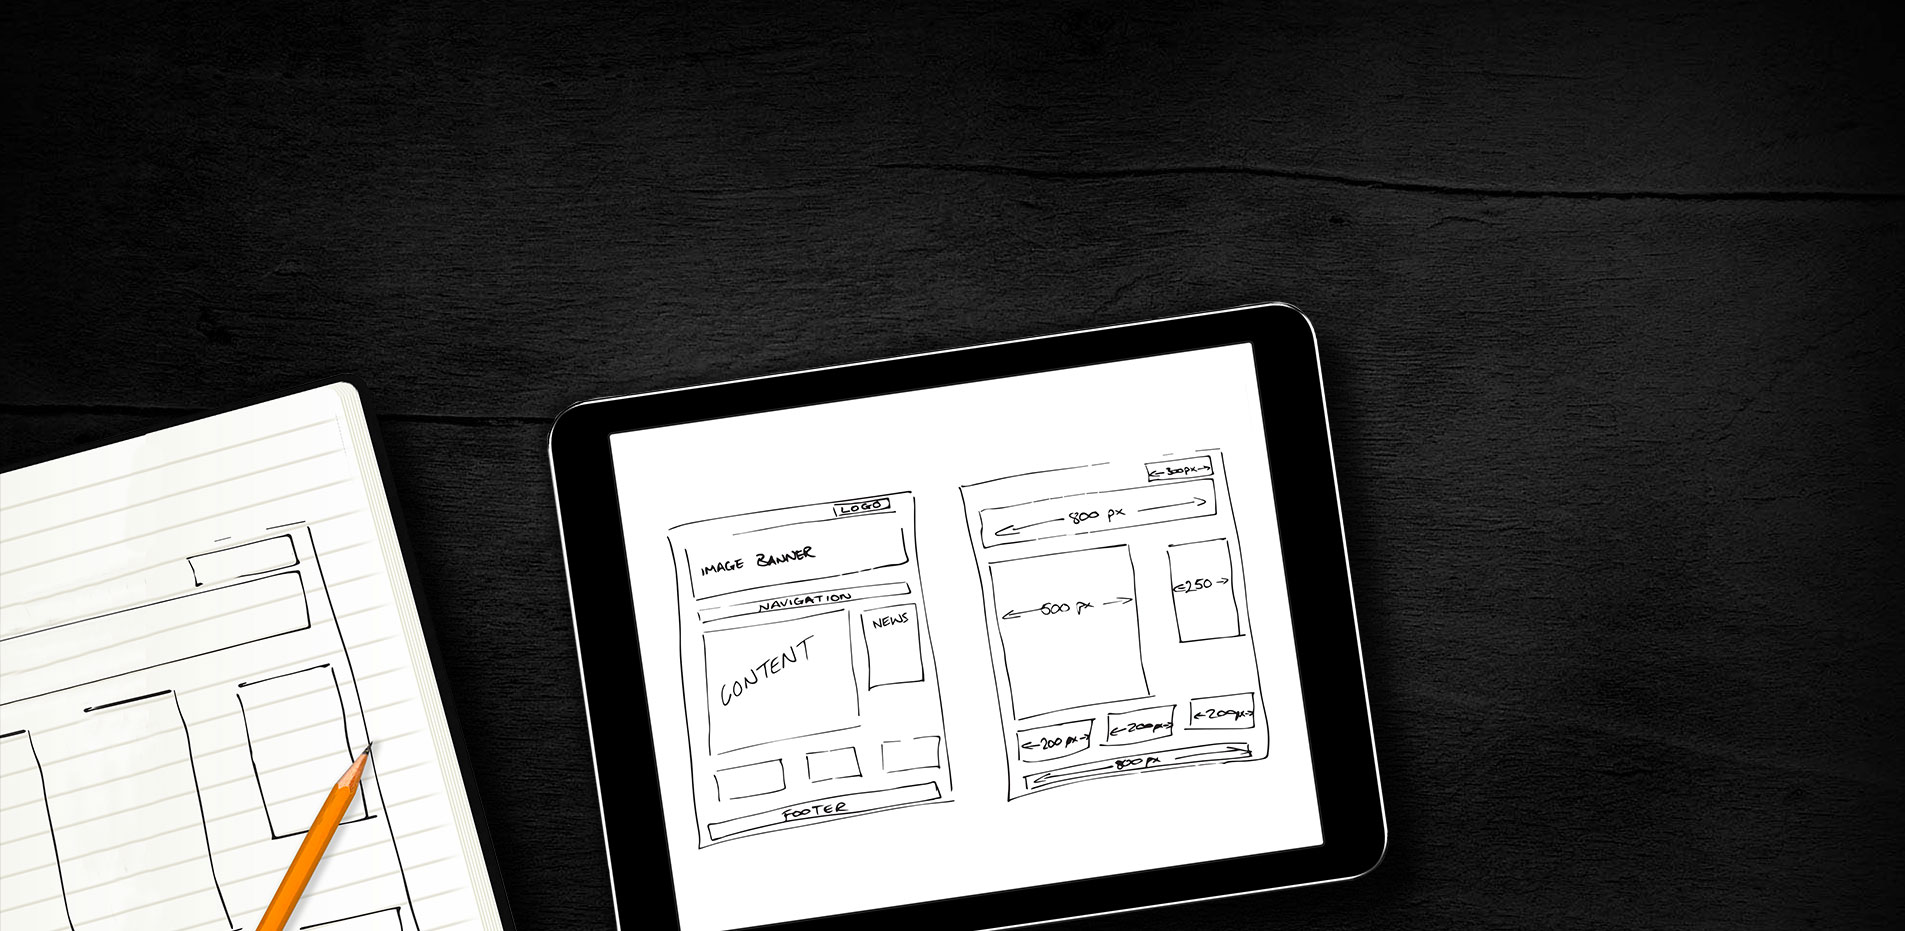 LOGO
IMAGE BANNER
NAVIGATION
CONTENT
NEWS
FOOTER
300px
800 px
500 px
250
200px
200px
200px
800px